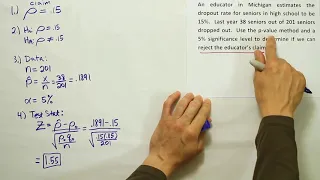 1.) ρ = .15
claim
2) H₀ ρ = .15
Hₐ ρ ≠ .15
3.) Data:
n = 201
p̂ = x/n = 38/201 = .1891
α = 5%
4) Test Stat:
Z = p̂ - p₀ / √(p₀q₀/n) = .1891 - .15 / √((.15)(.85)/201)
= 1.55
An educator in Michigan estimates the
dropout rate for seniors in high school to be
15%. Last year 38 seniors out of 201 seniors
dropped out. Use the p-value method and a
5% significance level to determine if we can
reject the educator's claim